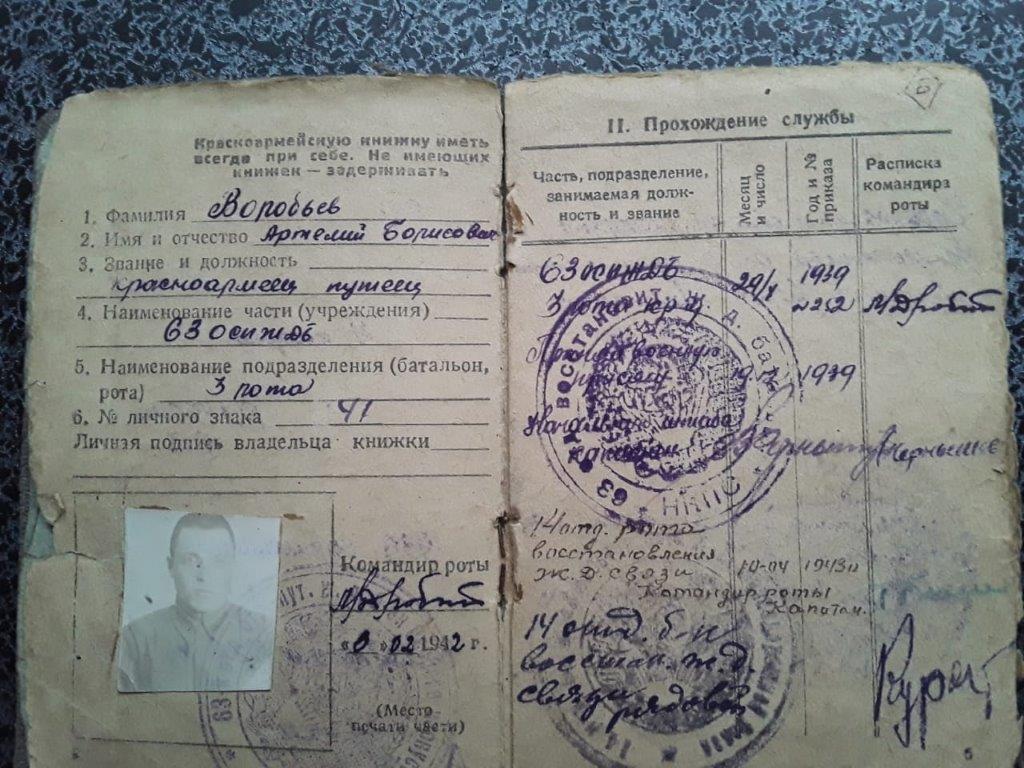 Красноармейскую книжку иметь
всегда при себе. Не имеющих
книжек — задерживать
1. Фамилия Воробьев
2. Имя и отчество Артемий Борисович
3. Звание и должность
красноармеец путеец
4. Наименование части (учреждения)
63 осипждб
5. Наименование подразделения (батальон,
рота) 3 рота
6. № личного знака 41
Личная подпись владельца книжки
Командир роты
02 1942 г.
(Место
печати части)
6
II. Прохождение службы
Часть, подразделение,
занимаемая долж-
ность и звание
Месяц
и число
Год и №
приказа
Расписка
командира
роты
63
1939
3 рота
№ 252
Принял военную
присягу
1939
Начальник штаба
капитан
63
НКПС
14 отд. рота
восстановления
Ж.Д. связи 10-04 1943г
Командир роты
Капитан.
14 отд. б-н
восстан. ж.д.
связи рядовой